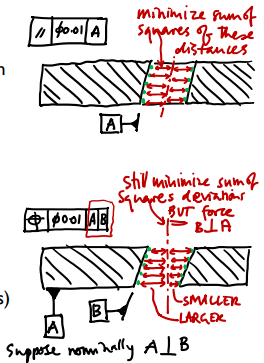 minimize sum of
squares of these
distances
// ⌀0.01 A
n
A
Still minimize sum of
squares deviations
BUT force
B⊥A
⌖ ⌀0.01 A B
s)
B
SMALLER
LARGER
A
Suppose nominally A⊥B